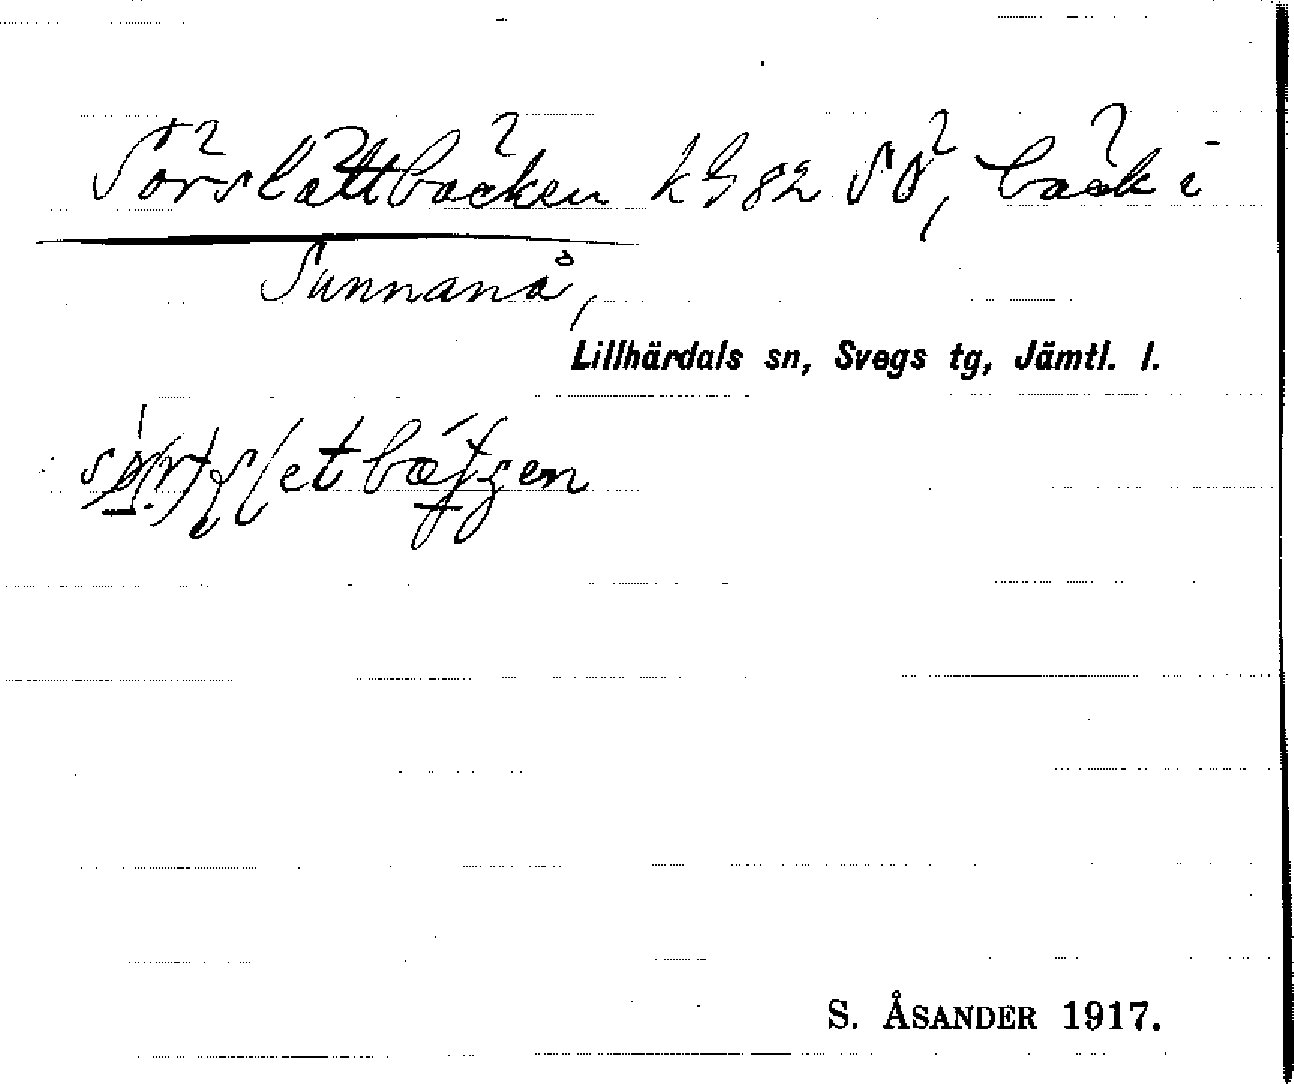 Sörslättbäcken kg 82 SÖ, bäck i
Sunnanå,
Lillhärdals sn, Svegs tg, Jämtl. l.
S. ÅSANDER 1917.